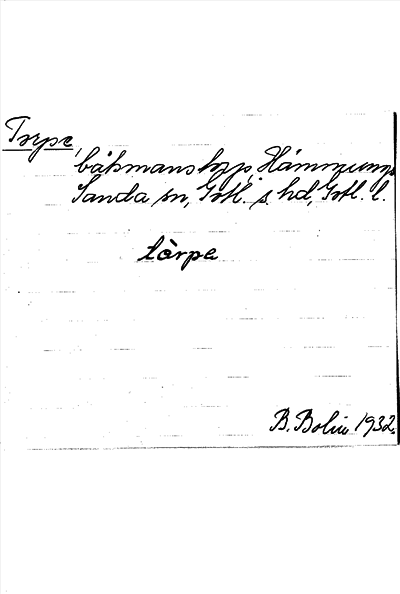 Torpe,
båtsmanstorp, Hämmungs
Sanda sn, Gotl. s. hd, Gotl. l.
tòrpe
B. Bolin 1932.